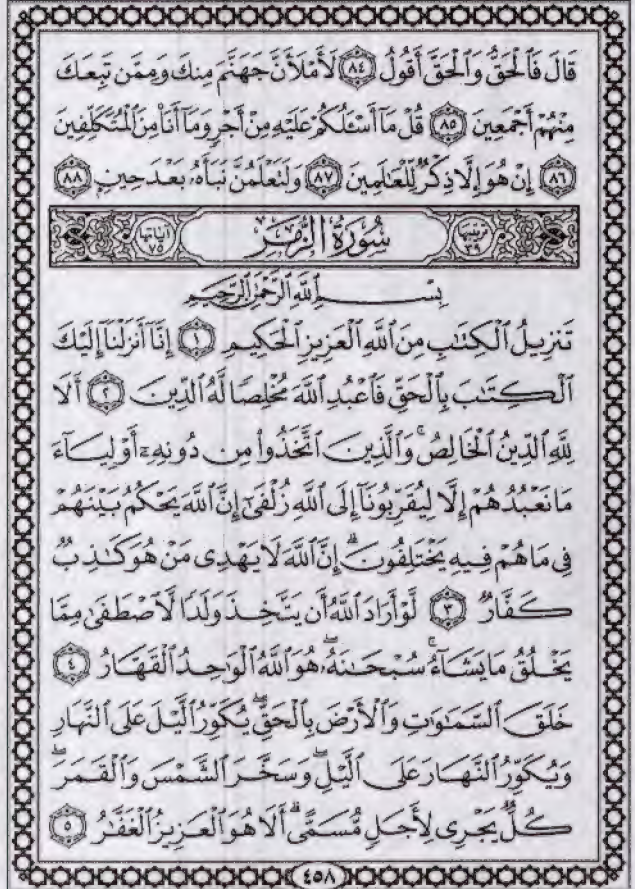 قَالَ فَٱلْحَقُّ وَٱلْحَقَّ أَقُولُ ٨٤ لَأَمْلَأَنَّ جَهَنَّمَ مِنكَ وَمِمَّن تَبِعَكَ
مِنْهُمْ أَجْمَعِينَ ٨٥ قُلْ مَآ أَسْـَٔلُكُمْ عَلَيْهِ مِنْ أَجْرٍ وَمَآ أَنَا۠ مِنَ ٱلْمُتَكَلِّفِينَ
٨٦ إِنْ هُوَ إِلَّا ذِكْرٌ لِّلْعَٰلَمِينَ ٨٧ وَلَتَعْلَمُنَّ نَبَأَهُۥ بَعْدَ حِينٍۭ ٨٨
ترتيبها ٣٩ سُورَةُ الزُّمَرِ آياتها ٧٥
بِسْمِ ٱللَّهِ ٱلرَّحْمَٰنِ ٱلرَّحِيمِ
تَنزِيلُ ٱلْكِتَٰبِ مِنَ ٱللَّهِ ٱلْعَزِيزِ ٱلْحَكِيمِ ١ إِنَّآ أَنزَلْنَآ إِلَيْكَ
ٱلْكِتَٰبَ بِٱلْحَقِّ فَٱعْبُدِ ٱللَّهَ مُخْلِصًا لَّهُ ٱلدِّينَ ٢ أَلَا
لِلَّهِ ٱلدِّينُ ٱلْخَالِصُ ۚ وَٱلَّذِينَ ٱتَّخَذُوا۟ مِن دُونِهِۦٓ أَوْلِيَآءَ
مَا نَعْبُدُهُمْ إِلَّا لِيُقَرِّبُونَآ إِلَى ٱللَّهِ زُلْفَىٰٓ إِنَّ ٱللَّهَ يَحْكُمُ بَيْنَهُمْ
فِى مَا هُمْ فِيهِ يَخْتَلِفُونَ ۗ إِنَّ ٱللَّهَ لَا يَهْدِى مَنْ هُوَ كَٰذِبٌ
كَفَّارٌ ٣ لَّوْ أَرَادَ ٱللَّهُ أَن يَتَّخِذَ وَلَدًا لَّٱصْطَفَىٰ مِمَّا
يَخْلُقُ مَا يَشَآءُ ۚ سُبْحَٰنَهُۥ ۖ هُوَ ٱللَّهُ ٱلْوَٰحِدُ ٱلْقَهَّارُ ٤
خَلَقَ ٱلسَّمَٰوَٰتِ وَٱلْأَرْضَ بِٱلْحَقِّ ۖ يُكَوِّرُ ٱلَّيْلَ عَلَى ٱلنَّهَارِ
وَيُكَوِّرُ ٱلنَّهَارَ عَلَى ٱلَّيْلِ ۖ وَسَخَّرَ ٱلشَّمْسَ وَٱلْقَمَرَ ۖ
كُلٌّ يَجْرِى لِأَجَلٍ مُّسَمًّى ۗ أَلَا هُوَ ٱلْعَزِيزُ ٱلْغَفَّٰرُ ٥
٤٥٨